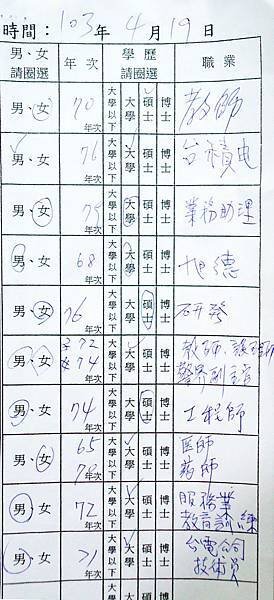 時間：103年 4月 19日
男、女 請圈選 年次 學歷 請圈選 職業
男、女 70 年次 大學以下 大學 碩士 博士 教師
男、女 76 年次 大學以下 大學 碩士 博士 台積电
男、女 79 年次 大學以下 大學 碩士 博士 業務助理
男、女 68 年次 大學以下 大學 碩士 博士 旭德
男、女 76 年次 大學以下 大學 碩士 博士 研發
男、女 72 74 年次 大學以下 大學 碩士 博士 教師、護理師
男、女 74 年次 大學以下 大學 碩士 博士 工程師
男、女 65 78 年次 大學以下 大學 碩士 博士 医師 葯師
男、女 72 年次 大學以下 大學 碩士 博士 服務業 教育訓練
男、女 71 年次 大學以下 大學 碩士 博士 台電公司 技術員